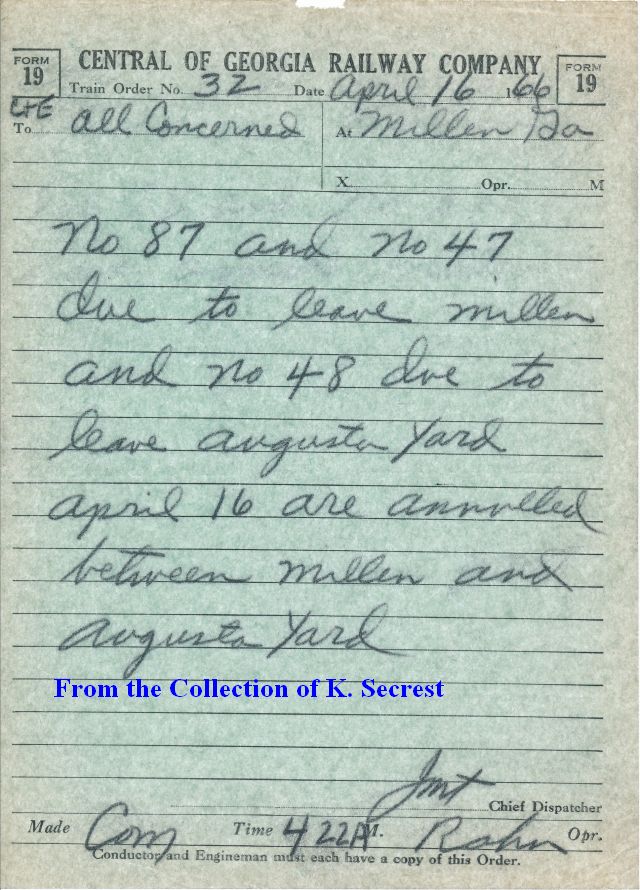 FORM 19 CENTRAL OF GEORGIA RAILWAY COMPANY FORM 19
Train Order No. 32 Date April 16 1966
C&E
To All Concerned At Millen Ga
X Opr. M
No 87 and No 47
due to leave Millen
and No 48 due to
leave Augusta Yard
April 16 are annulled
between Millen and
Augusta Yard
From the Collection of K. Secrest
JMT
Chief Dispatcher
Made Com Time 4 22 P M. Rahn Opr.
Conductor and Engineman must each have a copy of this Order.